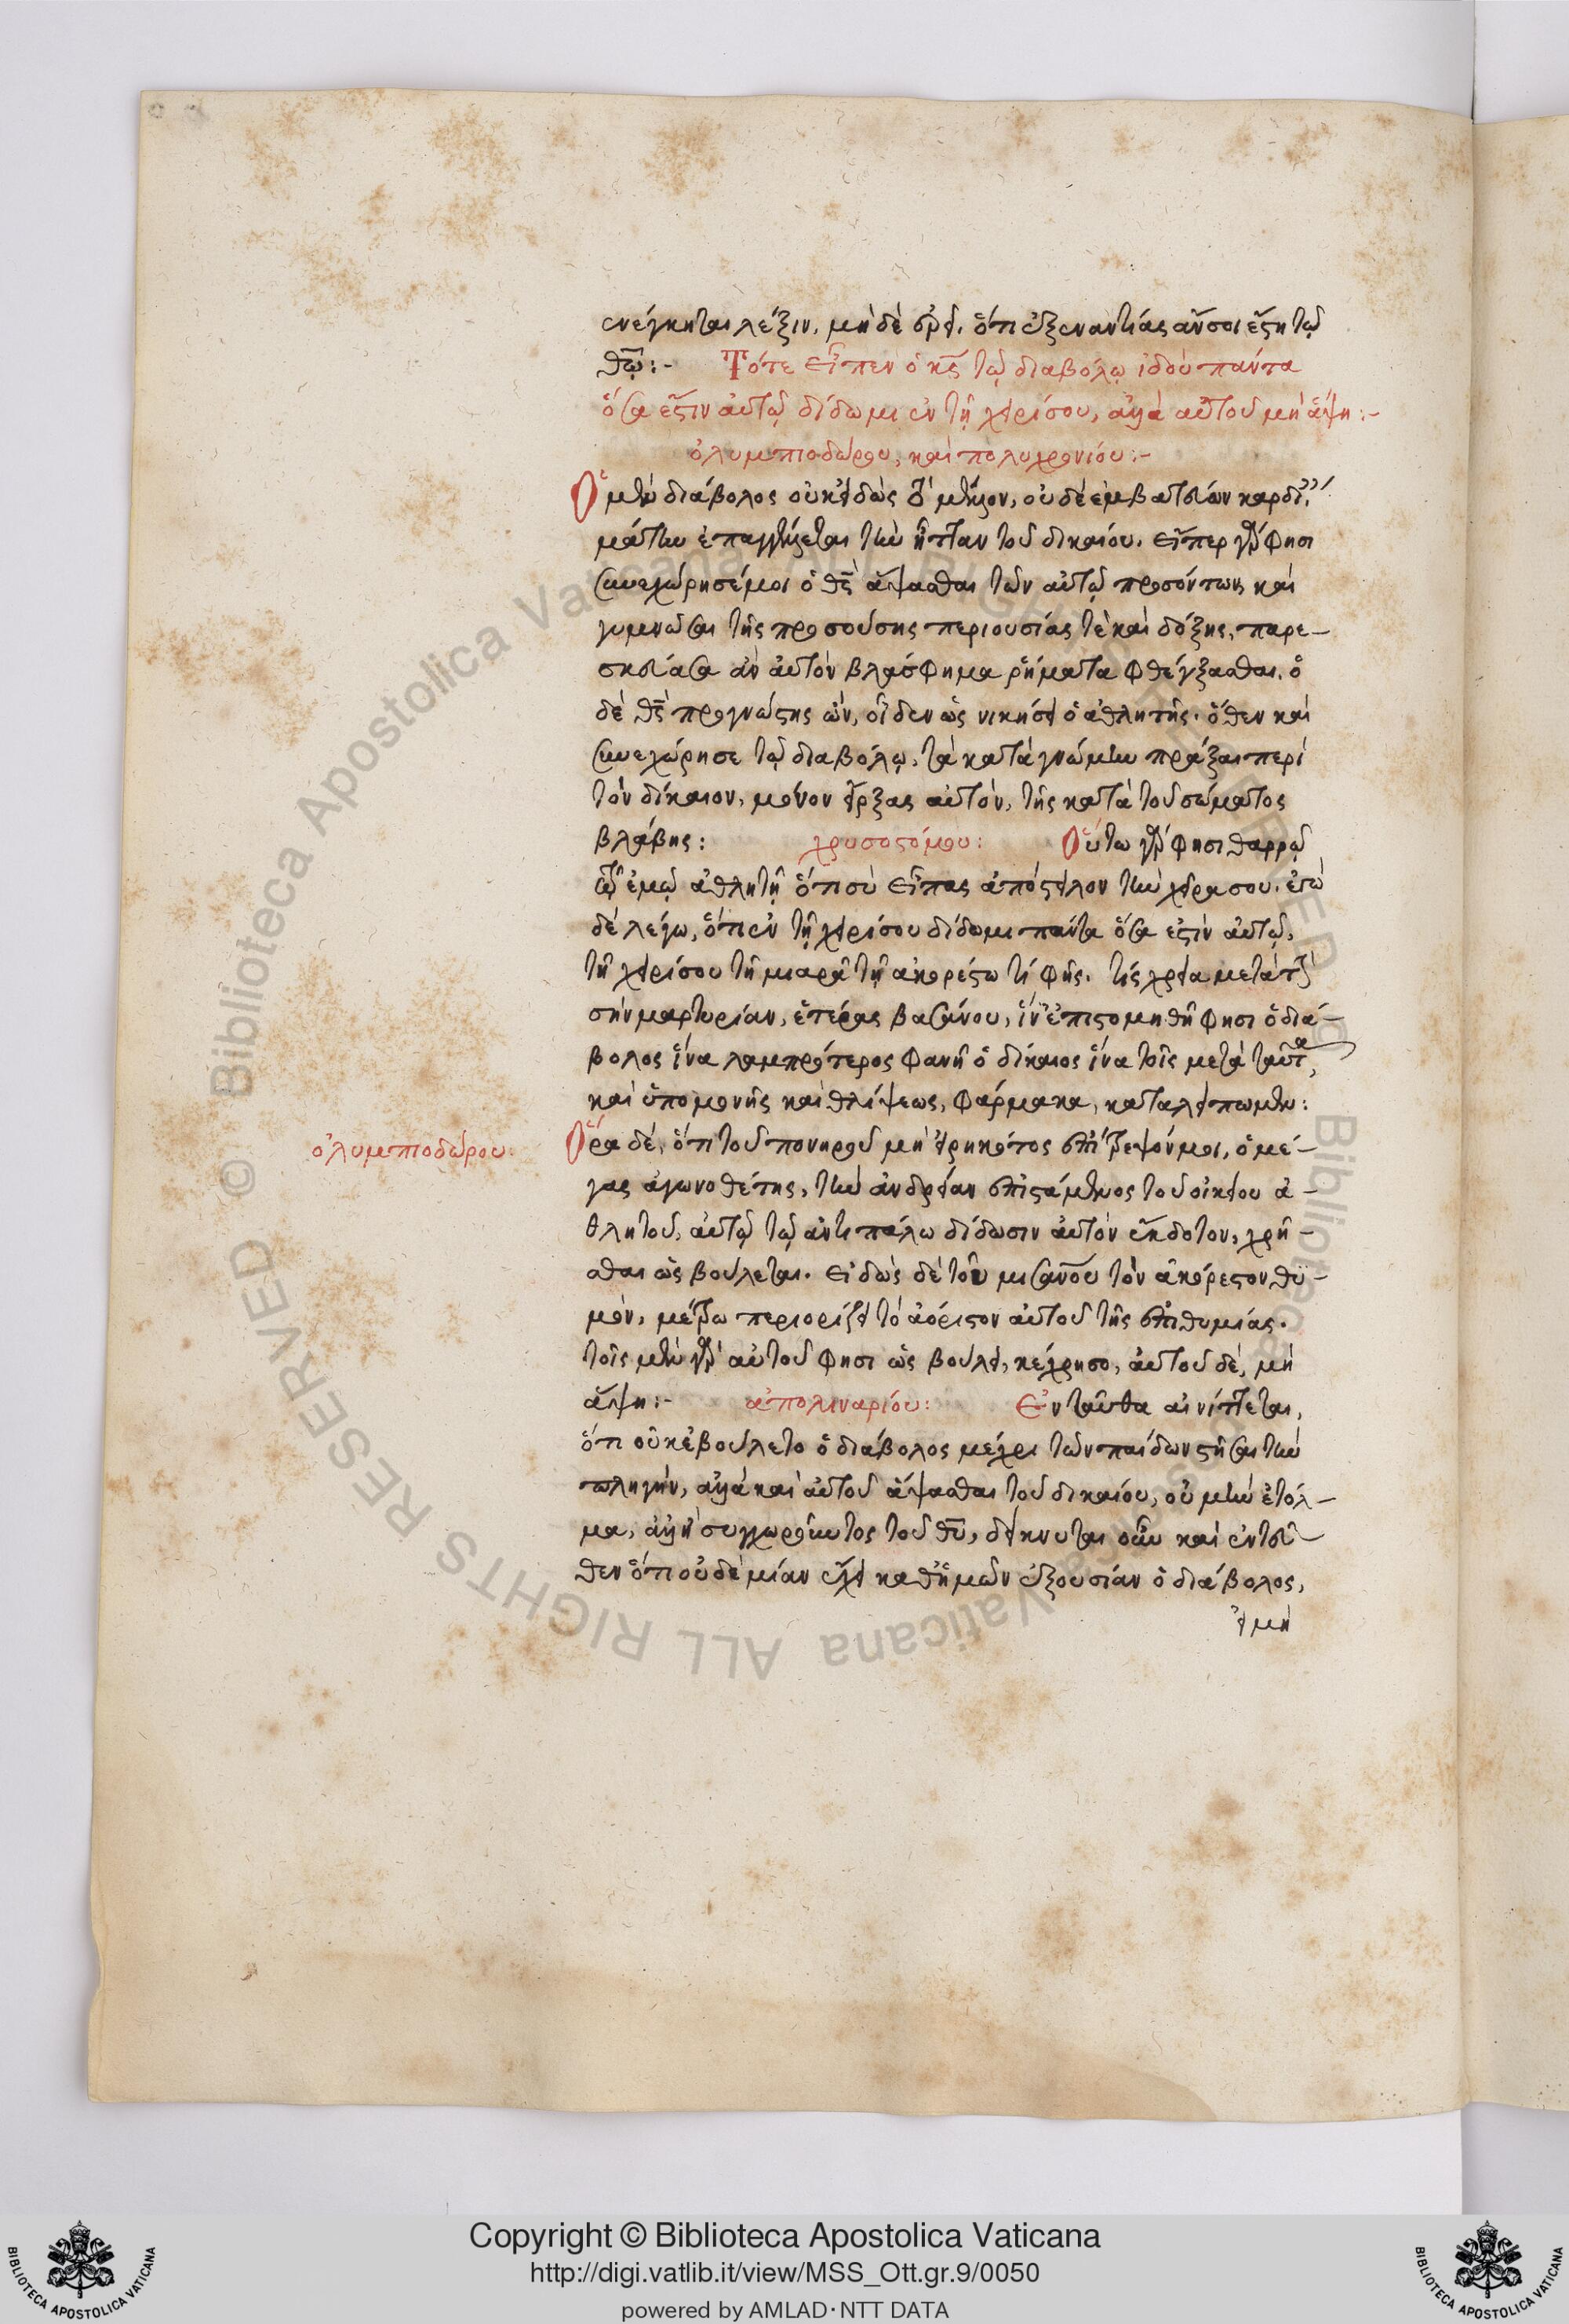 ενέγκηται λέξιν, μὴ δὲ ὅρα, ὅτι ἐξεναντίας ἄν σοι ἔστη τῷ
θῶ:- Τότε εἶπεν ὁ κς τῷ διαβόλῳ ἰδοὺ πάντα
ὅσα ἔστιν αὐτῷ δίδωμι ἐν τῇ χειρί σου, ἀλλὰ αὐτοῦ μὴ ἅψη:-
ὀλυμπιοδώρου, καὶ πολυχρονίου:-
Ὁ μὲν διάβολος οὐκ εἰδὼς τὸ μέλλον, οὐδὲ ἐμβατεύων καρδί
μάτην ἐπαγγέλλεται τὴν ἧτταν τοῦ δικαίου. εἴπερ γάρ φησι
συνεχώρησέ μοι ὁ θς ἅψασθαι τῶν αὐτῷ προσόντων καὶ
γυμνῶσαι τῆς προσούσης περιουσίας τὲ καὶ δόξης, παρε-
σκεύασα ἂν αὐτὸν βλάσφημα ῥήματα φθέγξασθαι. ὁ
δὲ θς προγνώστης ὢν, οἶδεν ὡς νικήσει ὁ ἀθλητής. ὅθεν καὶ
συνεχώρησε τῷ διαβόλῳ, τὰ κατὰ γνώμην πράξαι περὶ
τὸν δίκαιον, μόνον εἴρξας αὐτὸν, τῆς κατὰ τοῦ σώματος
βλάβης: χρυσοστόμου: Οὕτω γάρ φησι θαρρῶ
τῷ ἐμῷ ἀθλητῇ ὅτι σὺ εἶπας ἀπόστειλον τὴν χεῖρα σου. ἐγὼ
δὲ λέγω, ὅτι ἐν τῇ χειρί σου δίδωμι πάντα ὅσα ἐστὶν αὐτῷ,
τῇ χειρί σου τῇ μιαρᾷ τῇ ἀκορέστω τί φῄς. τίς χρεία μετὰ τὴν
σὴν μαρτυρίαν, ἑτέρας βασάνου, ἵν' ἐπιστομηθῇ φησι ὁ διά-
βολος ἵνα λαμπρότερος φανῇ ὁ δίκαιος ἵνα τοῖς μετὰ ταῦτα,
καὶ ὑπομονῆς καὶ θλίψεως, φάρμακα, καταλείπωμεν:
ὀλυμπιοδώρου: Ὅρα δέ, ὅτι τοῦ πονηροῦ μὴ εἰρηκότος ἐπίτρεψόν μοι, ὁ μέ-
γας ἀγωνοθέτης, τὴν ἀνδρείαν ἐπιστάμενος τοῦ οἰκείου ἀ-
θλητοῦ, αὐτῷ τῷ ἀντιπάλω δίδωσιν αὐτὸν ἔκδοτον, χρῆ-
σθαι ὡς βούλεται. εἰδὼς δὲ τοῦ μισανοῦ τὸν ἀκόρεστον θυ-
μὸν, μέτρω περιορίζει τὸ ἀόριστον αὐτοῦ τῆς ἐπιθυμίας.
τοῖς μὲν γὰρ αὐτοῦ φησι ὡς βούλει, κέχρησο, αὐτοῦ δὲ, μὴ
ἅψη:- ἀπολιναρίου: Ἐνταῦθα αἰνίττεται,
ὅτι οὐκ ἐβούλετο ὁ διάβολος μέχρι τῶν παίδων στῆσαι τὴν
πληγὴν, ἀλλὰ καὶ αὐτοῦ ἅψασθαι τοῦ δικαίου, οὐ μὲν ἐτόλ-
μα, ἀλλ' ἢ συγχωροῦντος τοῦ θυ, δείκνυται οὖν καὶ ἐντεῦ-
θεν ὅτι οὐδεμίαν ἔχει καθ' ἡμῶν ἐξουσίαν ὁ διάβολος,
εἰ μὴ
Copyright © Biblioteca Apostolica Vaticana
http://digi.vatlib.it/view/MSS_Ott.gr.9/0050
powered by AMLAD·NTT DATA
BIBLIOTECA APOSTOLICA VATICANA
BIBLIOTECA APOSTOLICA VATICANA
© Biblioteca Apostolica Vaticana ALL RIGHTS RESERVED